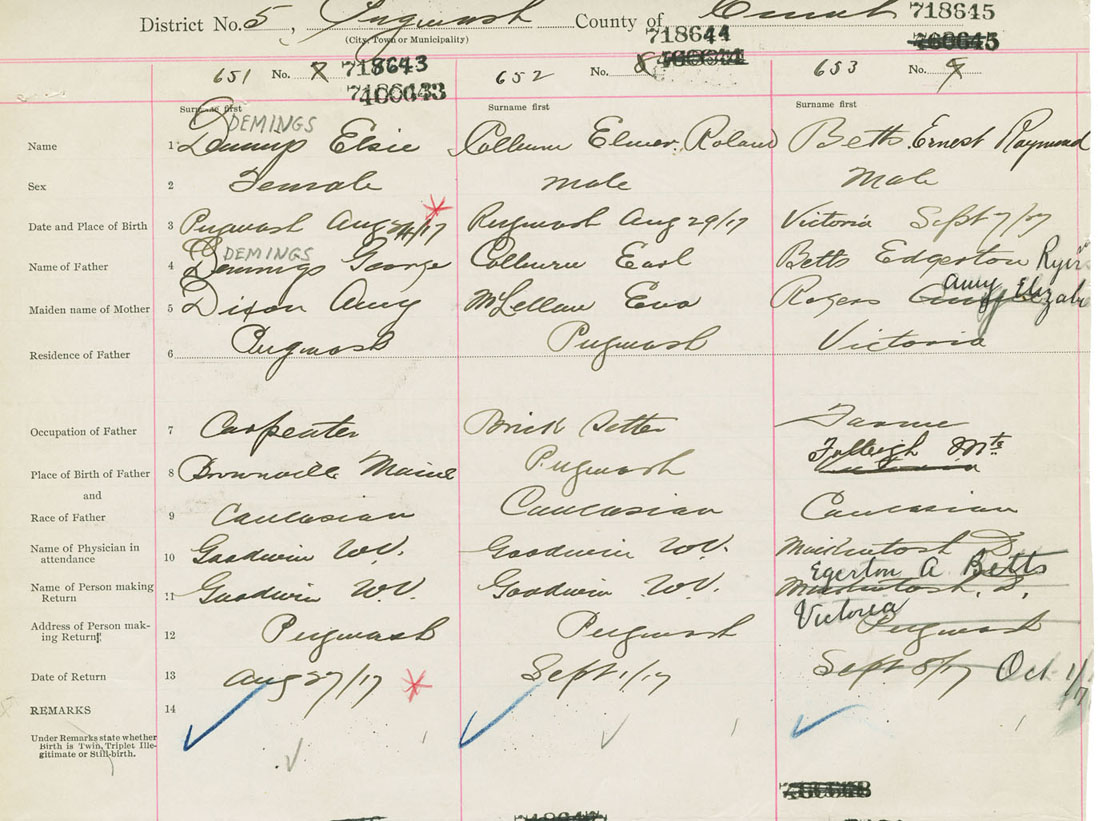 District No. 5, Pugwash County of Cumb 718645
(City, Town or Municipality) 718644
651 No. 7 718643 652 No. 8 653 No. 9
Surname first Surname first Surname first
DEMINGS
Name 1 Elsie Colburn Elmer Roland Betts Ernest Raymond
Sex 2 Female male Male
Date and Place of Birth 3 Pugwash Aug 24/17 Pugwash Aug 29/17 Victoria Sept 7/17
DEMINGS
Name of Father 4 Demings George Colburn Earl Betts Edgerton
Maiden name of Mother 5 Dixon Amy McLellan Eva Rogers Amy
Residence of Father 6 Pugwash Pugwash Victoria
Occupation of Father 7 Carpenter Brick Setter Farmer
Place of Birth of Father 8 Brownville Maine Pugwash Folleigh Mts
and
Race of Father 9 Caucasian Caucasian Caucasian
Name of Physician in
attendance 10 Goodwin W.V. Goodwin W.V. MacKintosh D.
Egerton A Betts
Name of Person making
Return 11 Goodwin W.V. Goodwin W.V. MacKintosh, D.
Victoria
Address of Person mak-
ing Return 12 Pugwash Pugwash Pugwash
Date of Return 13 Aug 27/17 Sept 1/17 Sept 8/17 Oct 1/17
REMARKS 14
Under Remarks state whether
Birth is Twin, Triplet Ille-
gitimate or Still-birth.